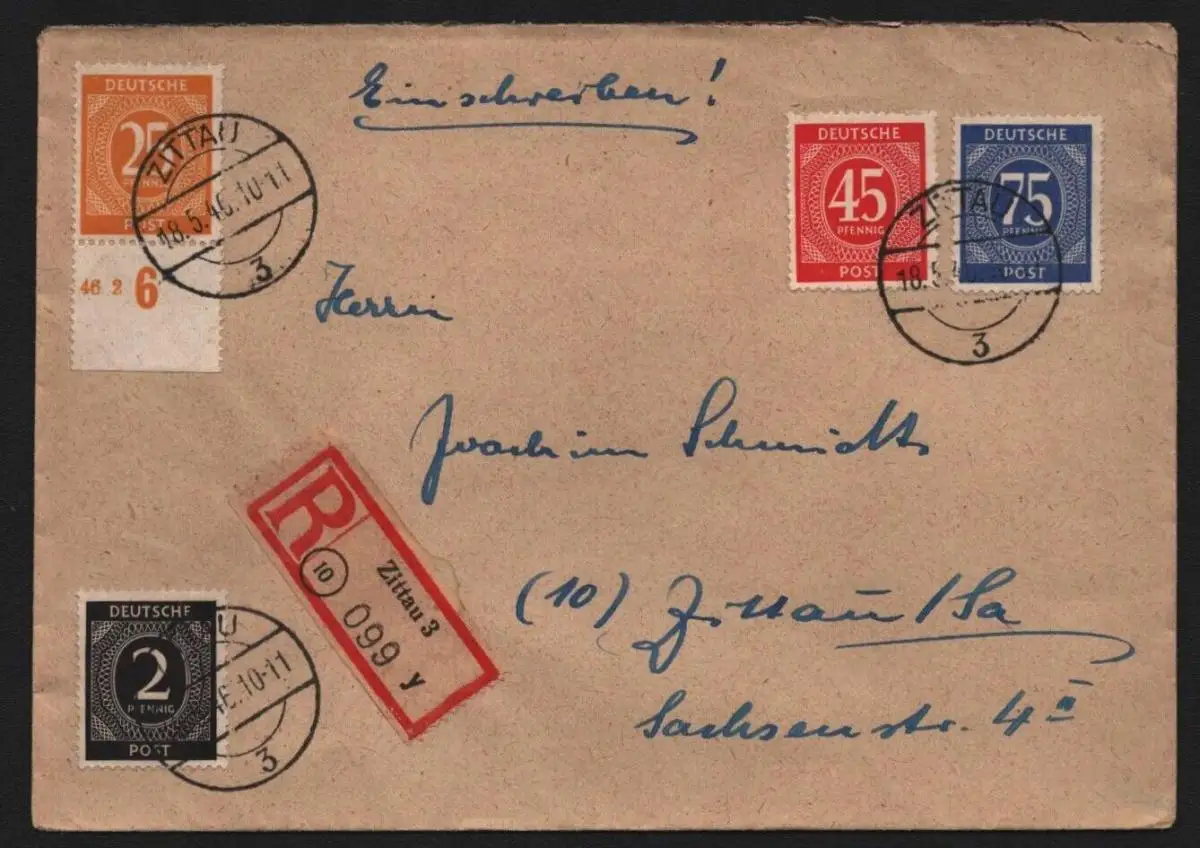 Einschreiben!
DEUTSCHE
25
PFENNIG
POST
46 2 6
ZITTAU
18.5.46.10-11
3
DEUTSCHE
45
PFENNIG
POST
DEUTSCHE
75
PFENNIG
POST
ZITTAU
18.5.4
3
Herrn
Joachim Schmidt
R
10
Zittau 3
099 y
(10) Zittau/Sa
Sachsenstr. 4 II
DEUTSCHE
2
PFENNIG
POST
AU
46.10-11
3